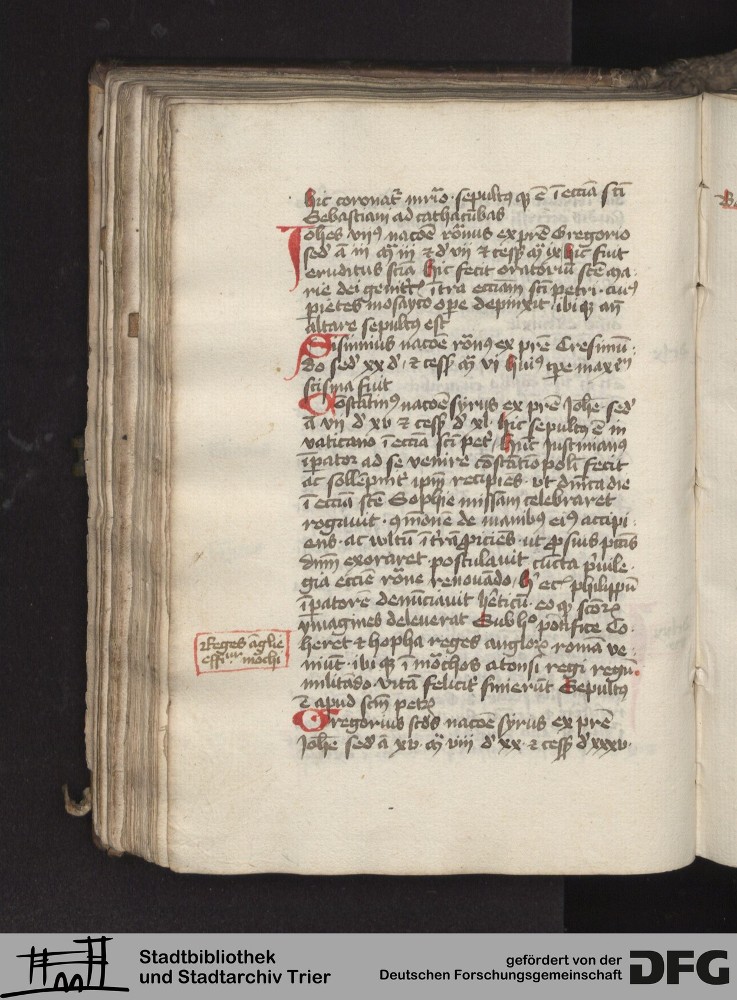 hic coronat᷑ mr̄io · sepultꝰ qꝫ ē ī eccīa sc̄i
Sebastiani ad cathacūbas
Iohēs vijꝰ nacōe rōnus ex pr̄e Gregorio
sed᷑ ā iii m̄ iii ⁊ d᷑ vii ⁊ cess᷑ m̄ ix hic fuit
eruditus sciā hic fecit oratoriū scē ma
rie dei genitͬcͥs ītra eccīam scī petri · cuiꝰ
p̄ietes mosayco oꝑe depinxit · ibi qꝫ an̄
altare sepultus est
Sisinnius nacōe rōnꝰ ex pr̄e
do sed᷑ xx d᷑ · ⁊ cess᷑ m̄ vi huiꝰ tp̄e
scisma fuit
Cōstātinꝰ nacōe syrus ex pr̄e Johē sed᷑
ā vii d᷑ xv ⁊ cess᷑ d᷑ xl · hic sepultꝰ ē in
vaticano ī eccīa scī pet᷑ · hūc Justinianꝰ
īperator ad se venire cōstātīopolī fecit
ac sollēpnit᷑ ip̄m recipiēs · vt dn̄ica die
ī eccīa scē Sophie missam celebraret
rogauit · ꝯmōnē de manibꝰ eiꝰ accipi
ens · ac wltū ī trā ꝓiciēs · ut ꝓ suis pctīs
dn̄m exoraret postulauit cūcta p̓uile
gia eccīe rōne renouādo · hͥ ec̄ philippū
īperatorē denūciauit hēticū · eo qꝫ scōrꝝ
ymagines deleuerat Sub hͦ pōtifice Co
heret ⁊ hopha reges anglorꝝ romā ve
niūt · ibi qꝫ ī mōchos atonsi regi regū
militādo · vitā felicit᷑ finierūt Sepultꝰ
ē apud scm̄ petrū
Gregorius scd̄s nacōe syrus ex pr̄e
Johē sed᷑ ā xv · m̄ viii d᷑ xx · ⁊ cess᷑ d᷑ xxxv ·
Reges āglie
effiͫͬ mōchi
Stadtbibliothek
und Stadtarchiv Trier
gefördert von der
Deutschen Forschungsgemeinschaft
DFG